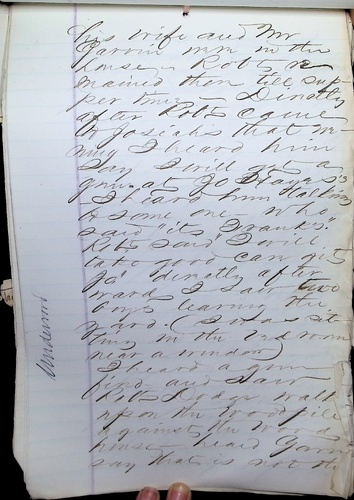 his wife and Mr
Garvin were in the
house. Robt re
mained there till sup
per time. Directly
after Robt came
to Josiahs that eve
ning I heard him
say I will get a
gun at Jo Hayes's
I heard him talking
to some one who
said "its Franks."
Robt said "I will
take good care of it
Jo" directly after
ward I saw two
boys leaving the
yard. (I was sit
ting in the bed room
near a window)
I heard a gun
fired and saw
Robt Dodge walk
up on the wood pile
against the wood
house, heard Garvin
say that is not the
Underwood